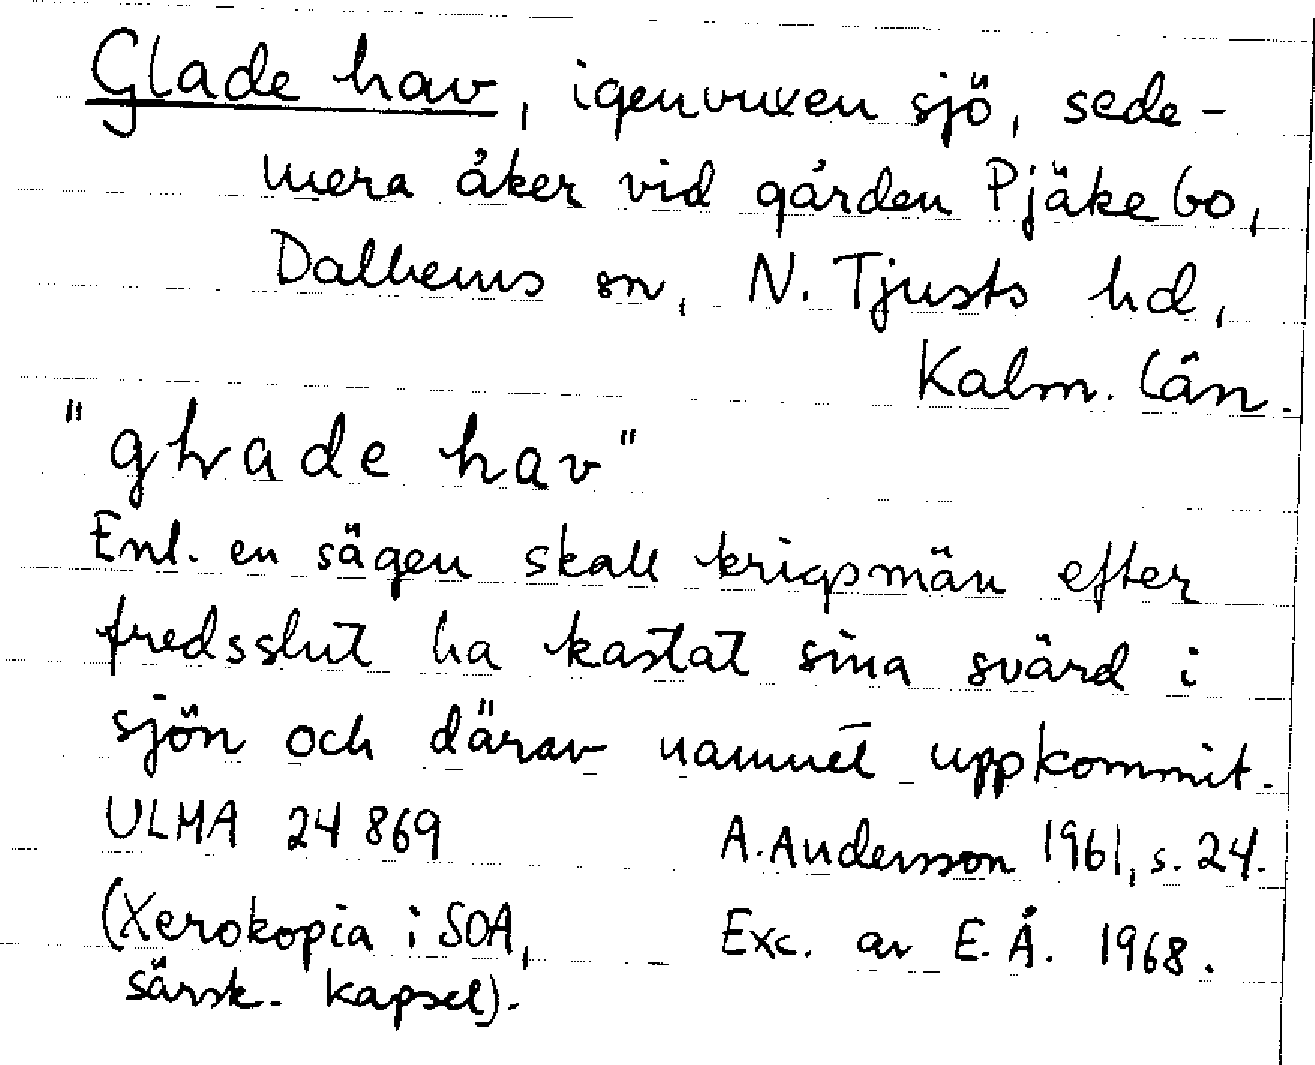 Glade hav, igenvuxen sjö, sede-
mera åker vid gården Pjäkebo,
Dalhems sn, N. Tjusts hd,
Kalm. län.
"ghade hav"
Enl. en sägen skall krigsmän efter
fredsslut ha kastat sina svärd i
sjön och därav namnet uppkommit.
ULMA 24 869 A. Andersson 1961, s. 24.
(Xerokopia i SOA, Exc. av E. Å. 1968.
särsk. kapsel).